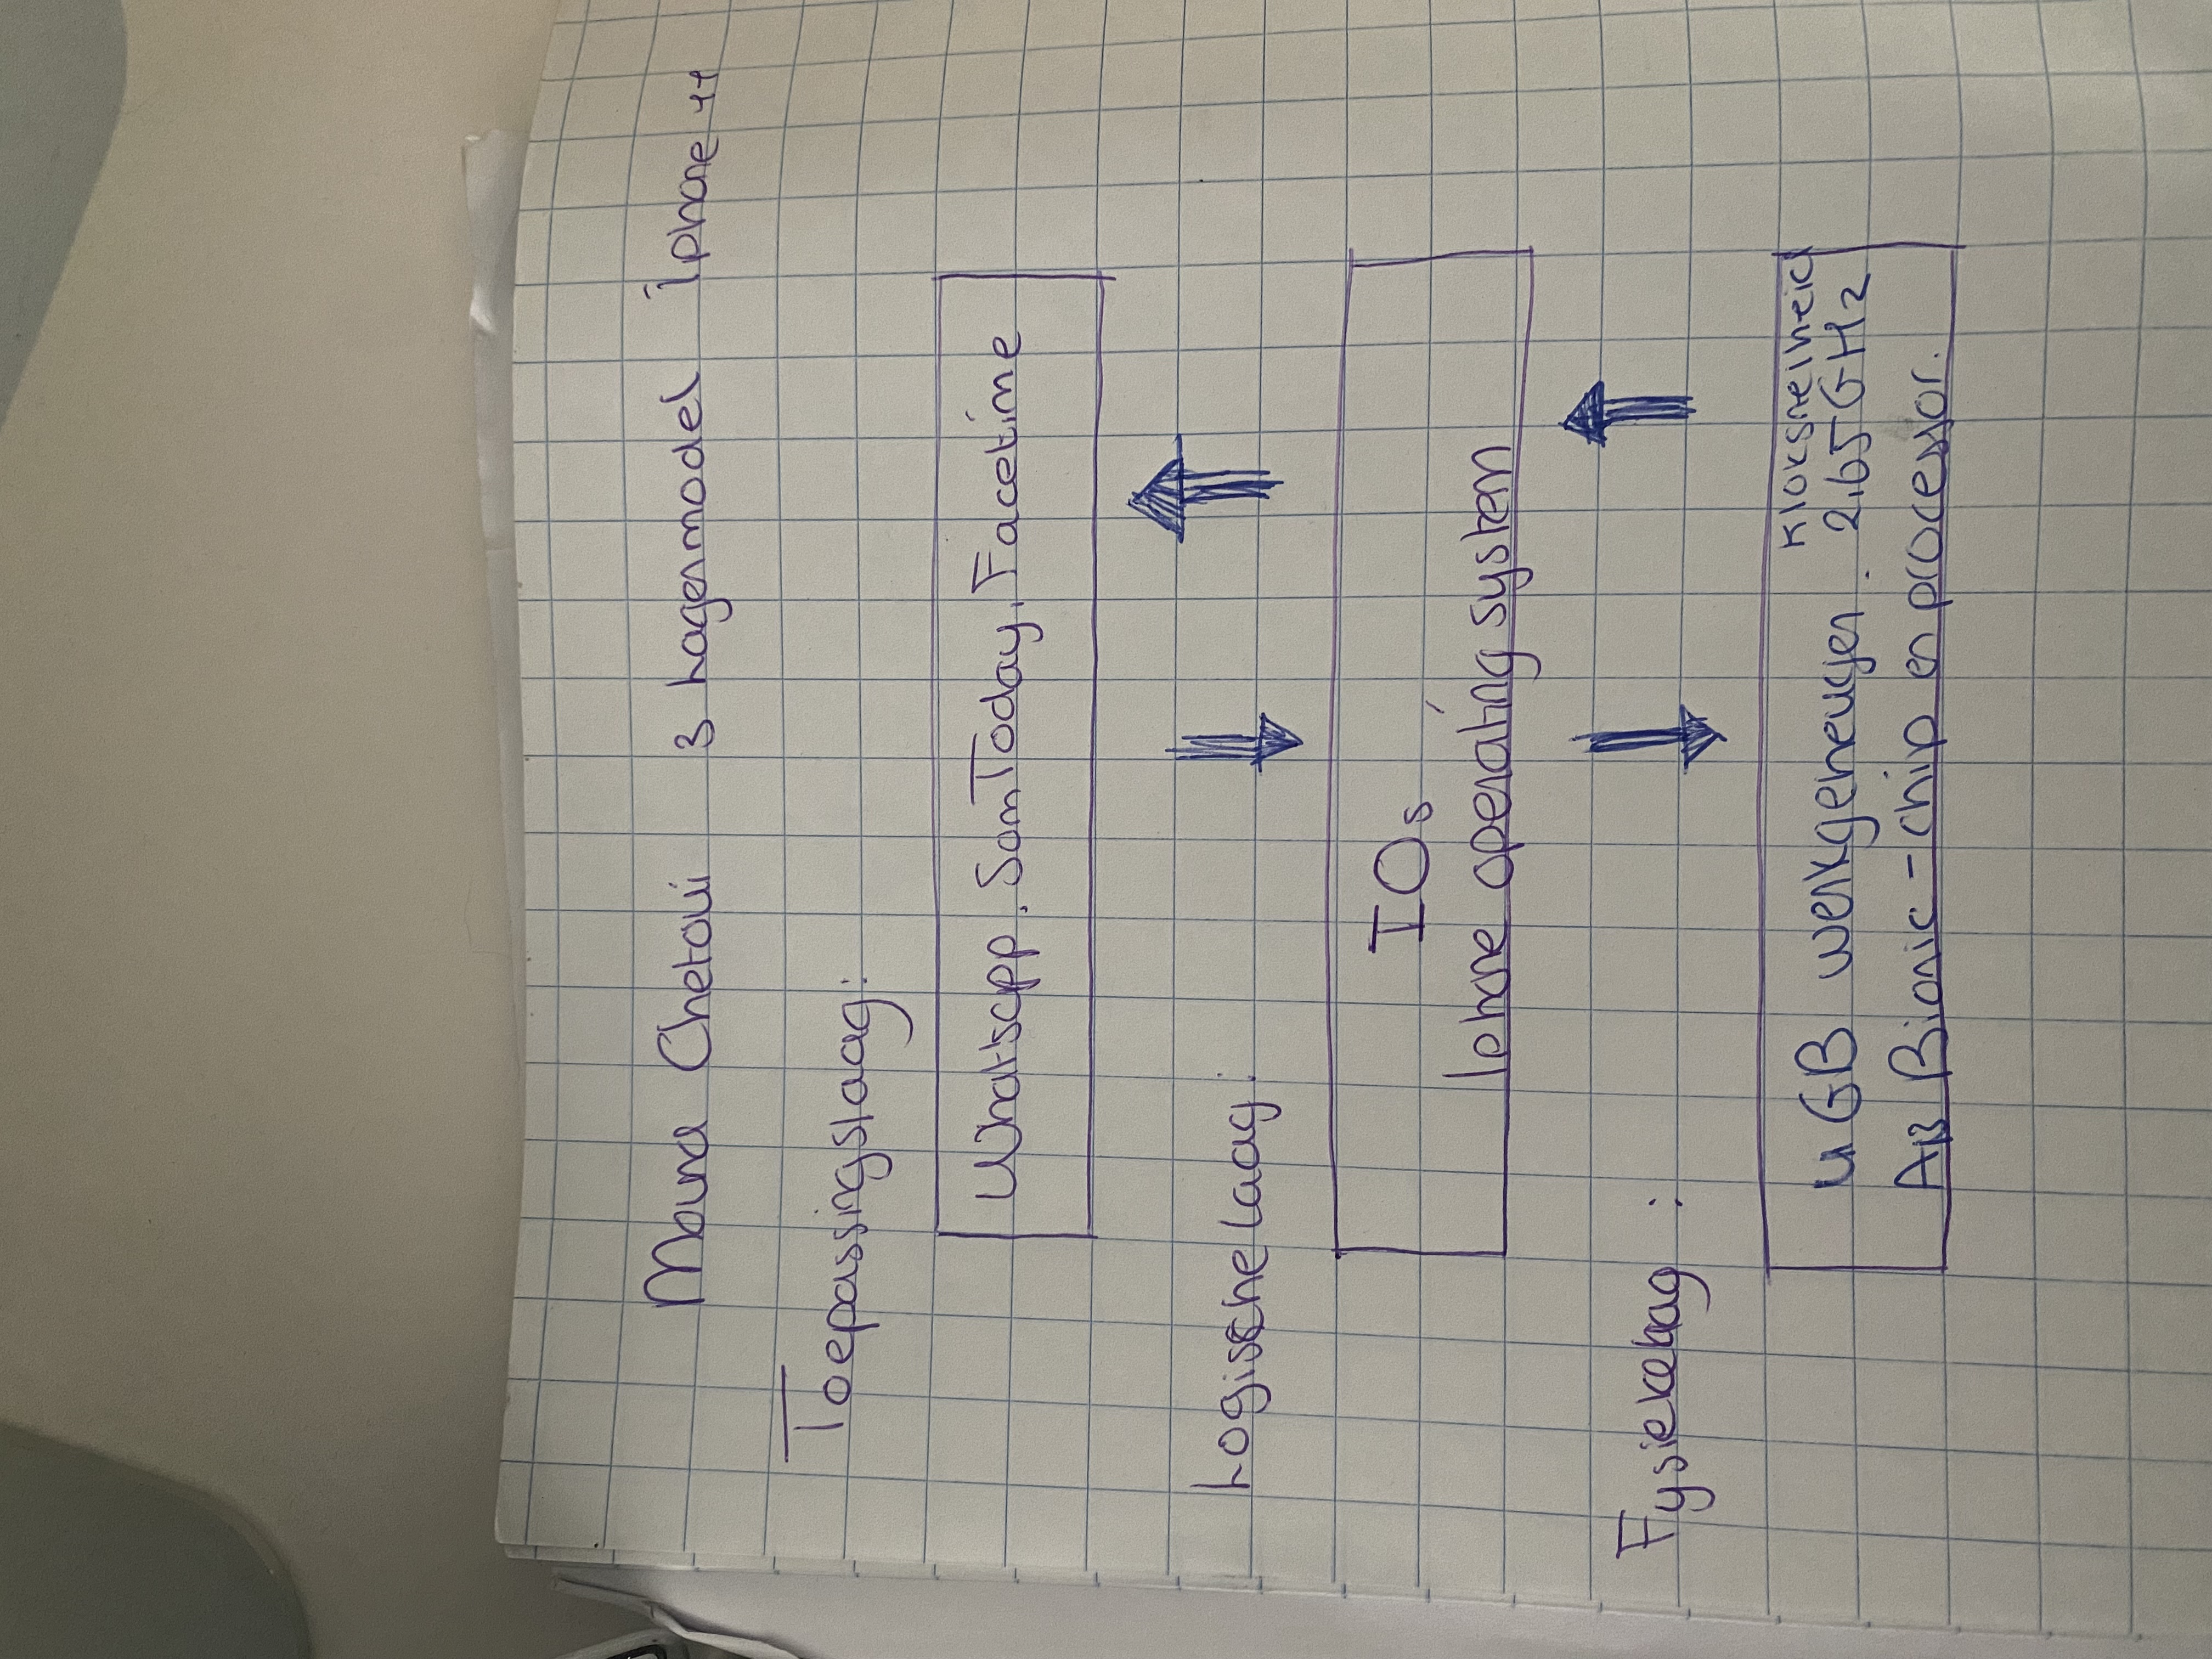 Mouna Chetoui 3 Lagenmodel Iphone 11
Toepassingslaag:
Whatsapp, SomToday, Facetime
Logische laag:
IOs
Iphone operating system
Fysieke laag :
4 GB werkgeheugen. Kloksnelheid
2,65 GHz
A13 Bionic - chip en processor.